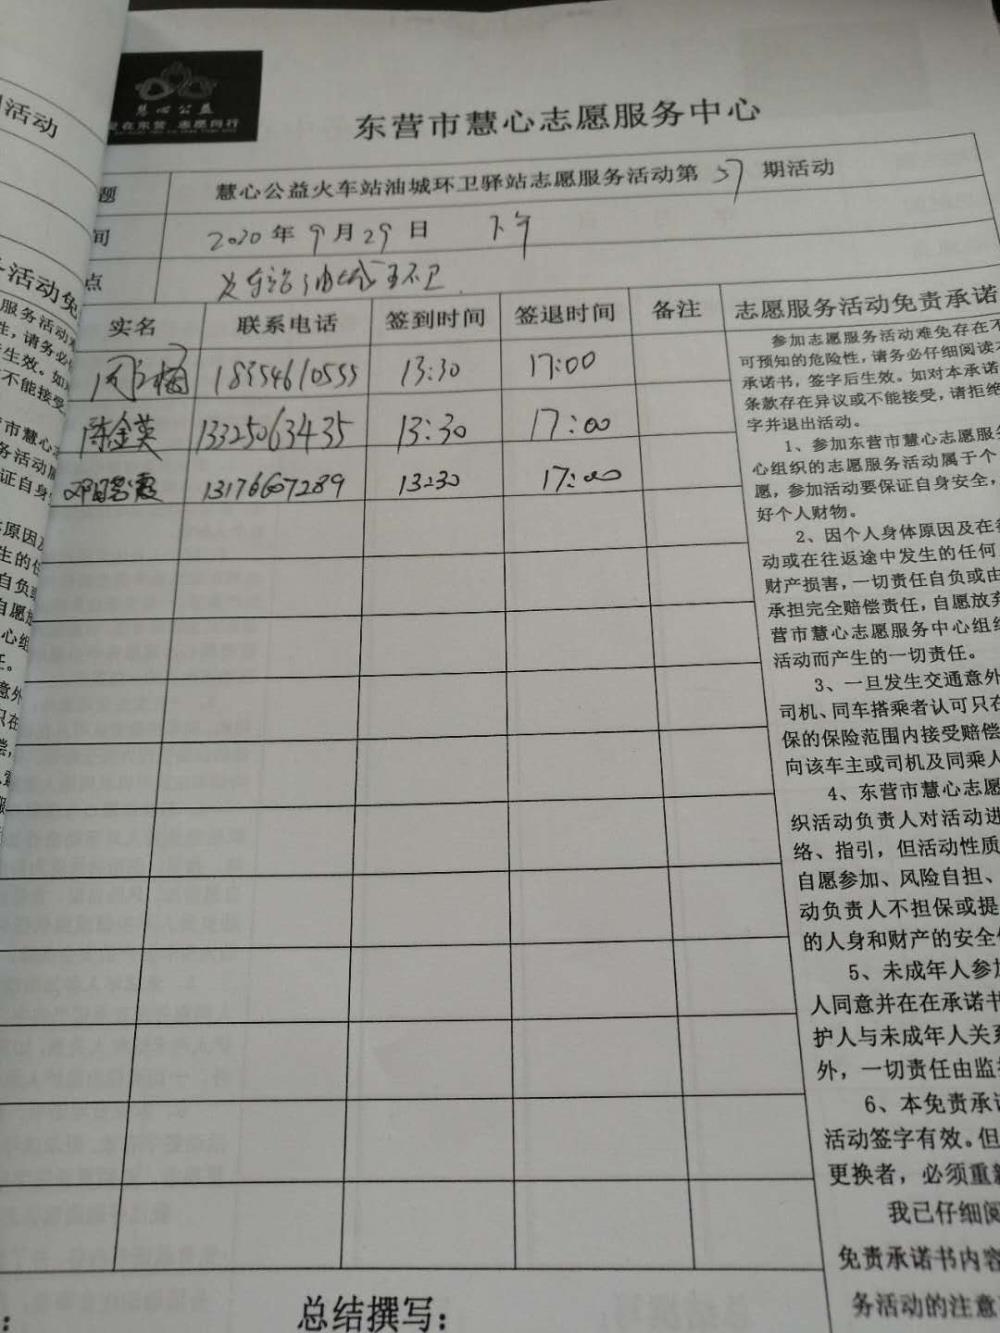 慧心公益
爱在东营 志愿同行
东营市慧心志愿服务中心
题 慧心公益火车站油城环卫驿站志愿服务活动第 57 期活动
间 2020 年 9 月 29 日 下午
点 火车站油城环卫
实名 联系电话 签到时间 签退时间 备注 志愿服务活动免责承诺
18954610555 13:30 17:00
陈金英 13325063435 13:30 17:00
13176607289 13:30 17:00
参加志愿服务活动难免存在不
可预知的危险性，请务必仔细阅读本
承诺书，签字后生效。如对本承诺
条款存在异议或不能接受，请拒绝
字并退出活动。
1、参加东营市慧心志愿服务
心组织的志愿服务活动属于个
愿，参加活动要保证自身安全，
好个人财物。
2、因个人身体原因及在
动或在往返途中发生的任何
财产损害，一切责任自负或由
承担完全赔偿责任，自愿放弃
营市慧心志愿服务中心组织
活动而产生的一切责任。
3、一旦发生交通意外
司机、同车搭乘者认可只在
保的保险范围内接受赔偿
向该车主或司机及同乘人
4、东营市慧心志愿
织活动负责人对活动进
络、指引，但活动性质
自愿参加、风险自担、
动负责人不担保或提
的人身和财产的安全
5、未成年人参加
人同意并在在承诺书
护人与未成年人关系
外，一切责任由监
6、本免责承诺
活动签字有效。但
更换者，必须重新
我已仔细阅
免责承诺书内容
务活动的注意
总结撰写：